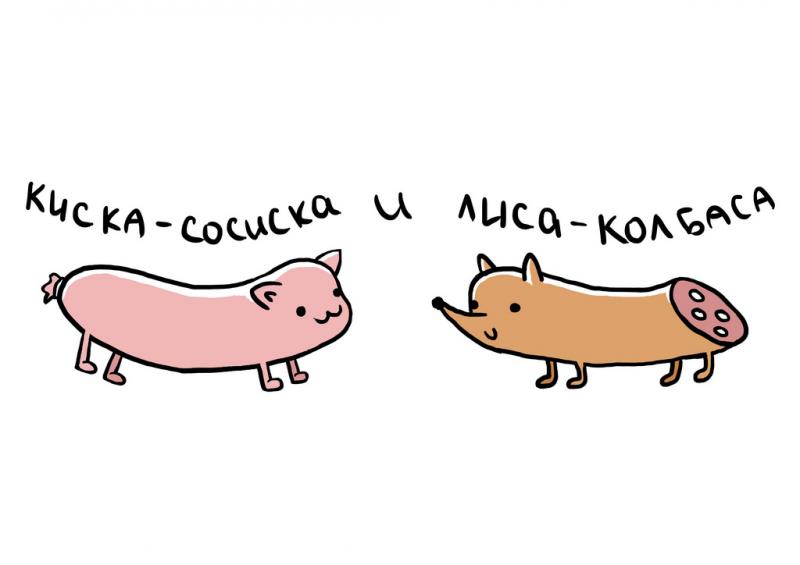 киска-сосиска и лиса-колбаса